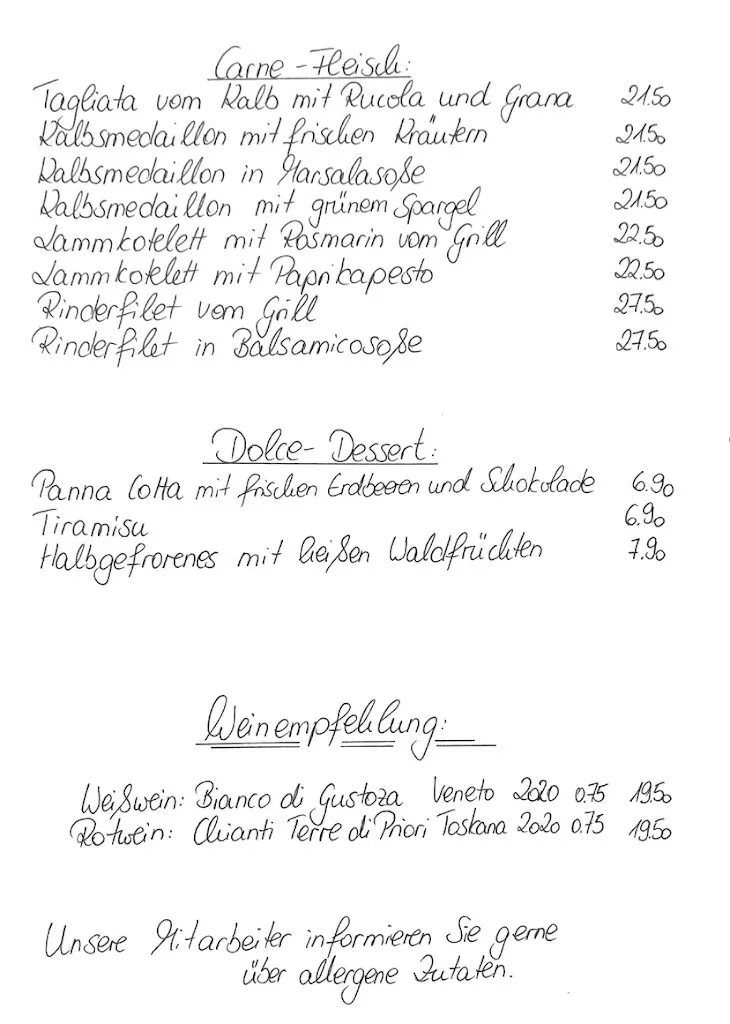 Carne - Fleisch:
Tagliata vom Kalb mit Rucola und Grana 21.50
Kalbsmedaillon mit frischen Kräutern 21.50
Kalbsmedaillon in Marsalasoße 21.50
Kalbsmedaillon mit grünem Spargel 21.50
Lammkotelett mit Rosmarin vom Grill 22.50
Lammkotelett mit Paprikapesto 22.50
Rinderfilet vom Grill 27.50
Rinderfilet in Balsamicosoße 27.50
Dolce - Dessert:
Panna Cotta mit frischen Erdbeeren und Schokolade 6.90
Tiramisu 6.90
Halbgefrorenes mit heißen Waldfrüchten 7.90
Weinempfehlung:
Weißwein: Bianco di Gustoza Veneto 2020 0.75 19.50
Rotwein: Chianti Terre di Priori Toskana 2020 0.75 19.50
Unsere Mitarbeiter informieren Sie gerne
über allergene Zutaten.